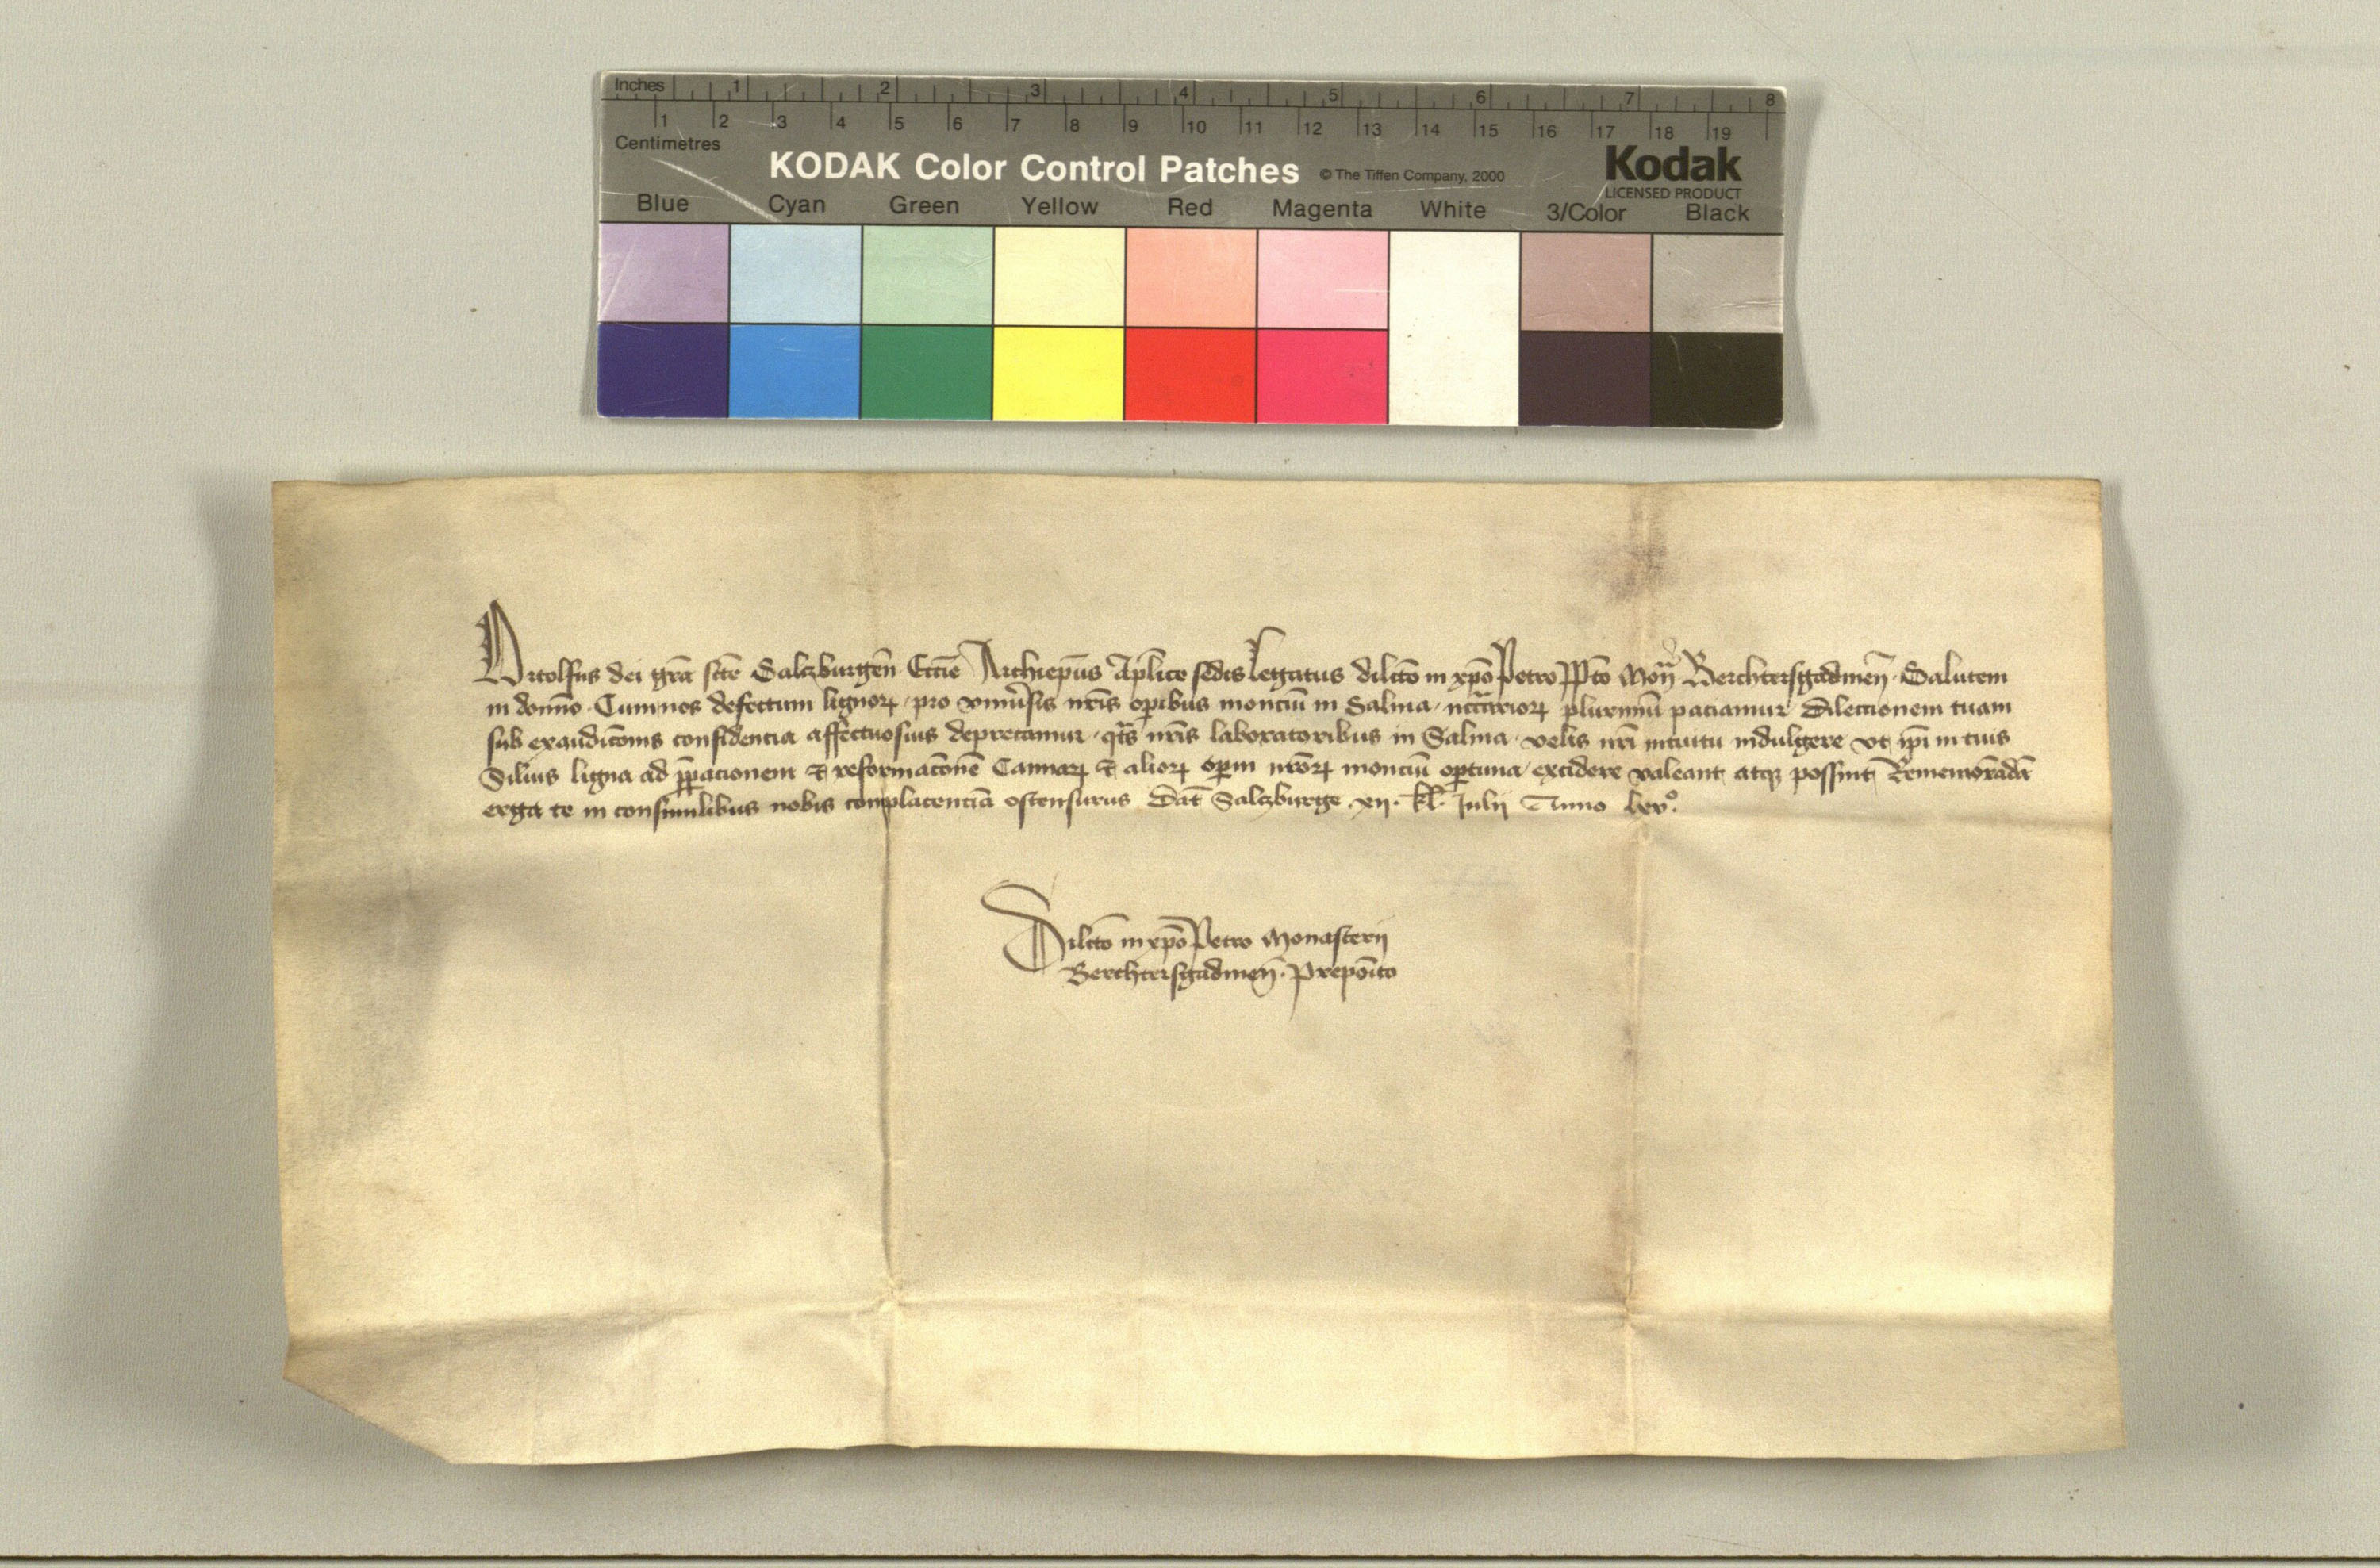 Inches 1 2 3 4 5 6 7 8
1 2 3 4 5 6 7 8 9 10 11 12 13 14 15 16 17 18 19
Centimetres
KODAK Color Control Patches © The Tiffen Company, 2000 Kodak
LICENSED PRODUCT
Blue Cyan Green Yellow Red Magenta White 3/Color Black
Ortolfus dei gr̄a sc̄te Salczburgen̄ Ecc̄ie Archiep̄us Ap̄lice sedis Legatus dilc̄to in xp̄o Petro Pp̄to Mon̄ Berchtersgadmen̄ Salutem
in domn̄o · Cum nos defectum lignoꝝ pro vniuˀsis nr̄is oꝑibus monciū in Salina · nccāꝛioꝝ plurimū paciamur Dilectionem tuam
sub exaudic̄onis confidencia affectuosius deprecamur · qt̄s nr̄is laboratoribus in Salina · velis nr̄i intuitu indulgere vt ip̄i in tuis
Siluis ligna ad p̄ꝑacionem & reformac̄onē Cannaꝝ & alioꝝ oꝑum nr̄oꝝ monciū oꝑtuna excidere valeant atqꝫ possint
erga te in consimilibus nobis complacenciā ostensurus Dat̄ Salczburge · xii · kl̄ · Julij Anno lxvº.
Dilc̄to in xp̄o Petro Monasterij
Berchtersgadmen̄ · Prepōito